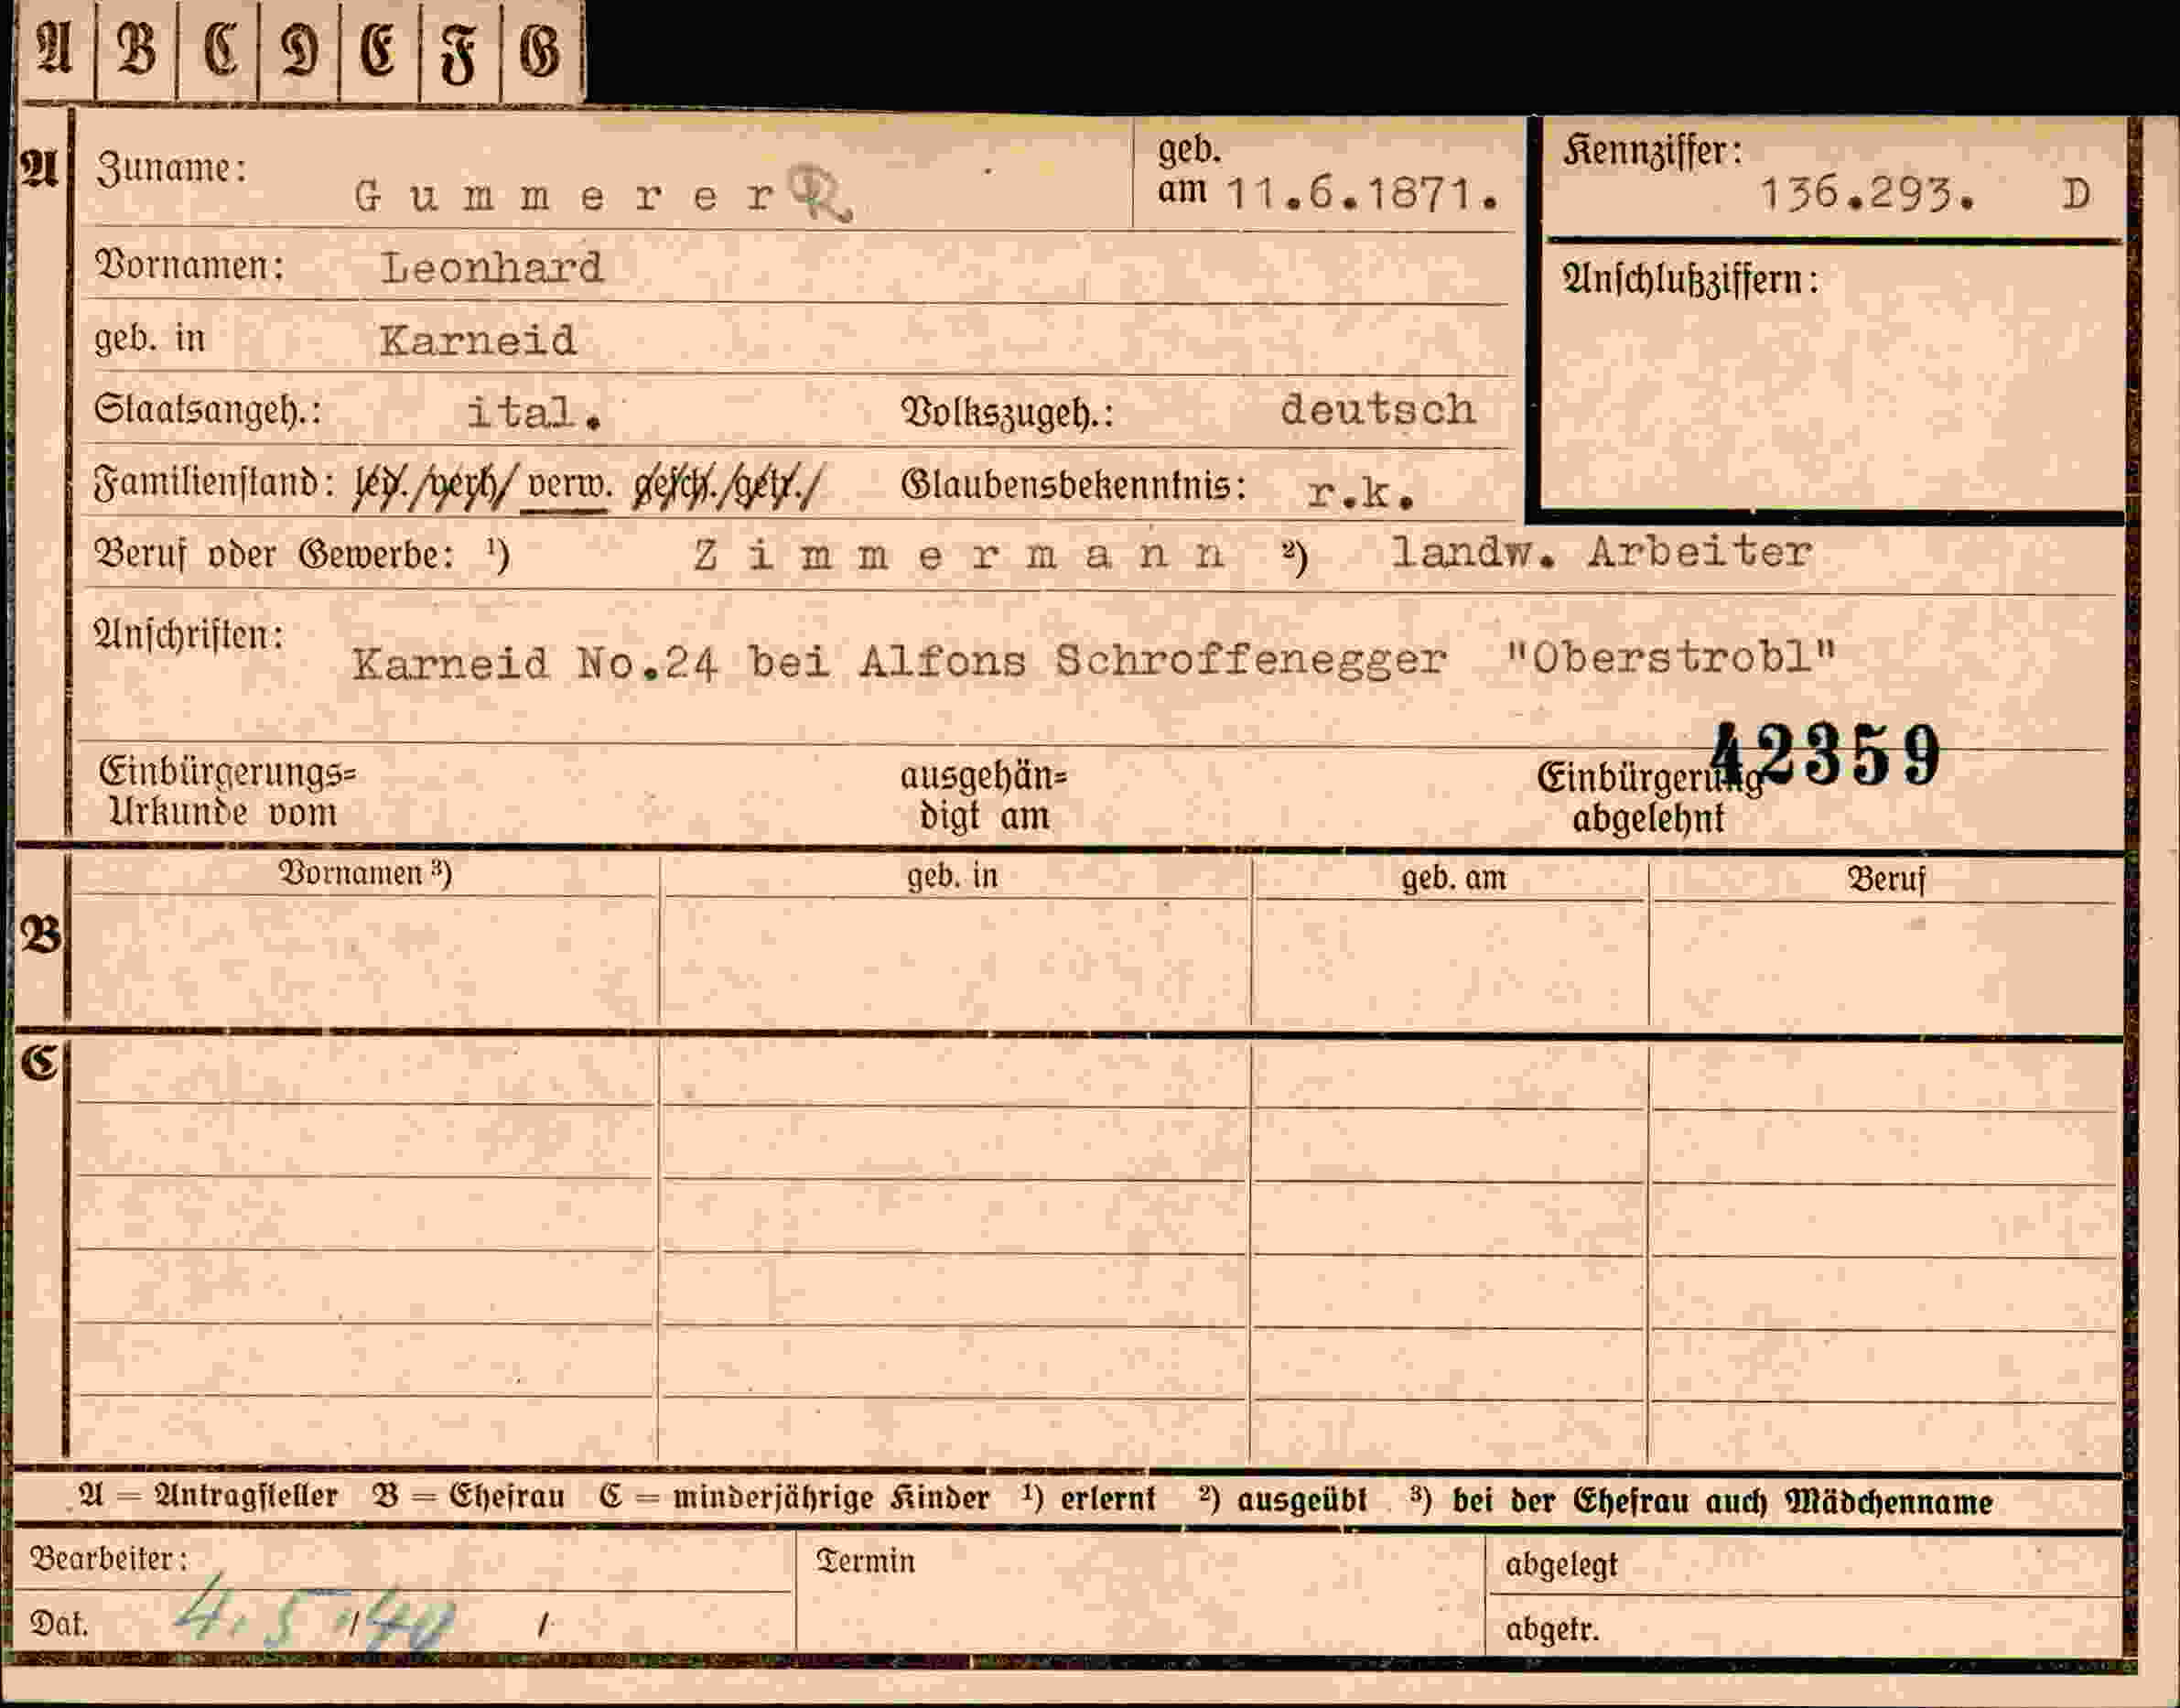 A B C D E F G
A Zuname: Gummerer R geb. am 11.6.1871. Kennziffer: 136.293. D
Vornamen: Leonhard Anschlußziffern:
geb. in Karneid
Staatsangeh.: ital. Volkszugeh.: deutsch
Familienstand: led./verh/ verw. gesch./getr./ Glaubensbekenntnis: r.k.
Beruf oder Gewerbe: ¹) Zimmermann ²) landw. Arbeiter
Anschriften: Karneid No.24 bei Alfons Schroffenegger "Oberstrobl"
42359
Einbürgerungs= ausgehän= Einbürgerung
Urkunde vom digt am abgelehnt
Vornamen ³) geb. in geb. am Beruf
B
C
A = Antragsteller B = Ehefrau C = minderjährige Kinder ¹) erlernt ²) ausgeübt ³) bei der Ehefrau auch Mädchenname
Bearbeiter: Termin abgelegt
Dat. 4.5.40 / abgetr.